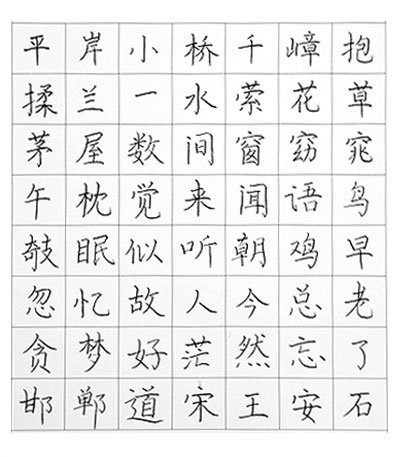 平岸小桥千嶂抱
揉兰一水萦花草
茅屋数间窗窈窕
午枕觉来闻语鸟
欹眠似听朝鸡早
忽忆故人今总老
贪梦好茫然忘了
邯郸道宋王安石